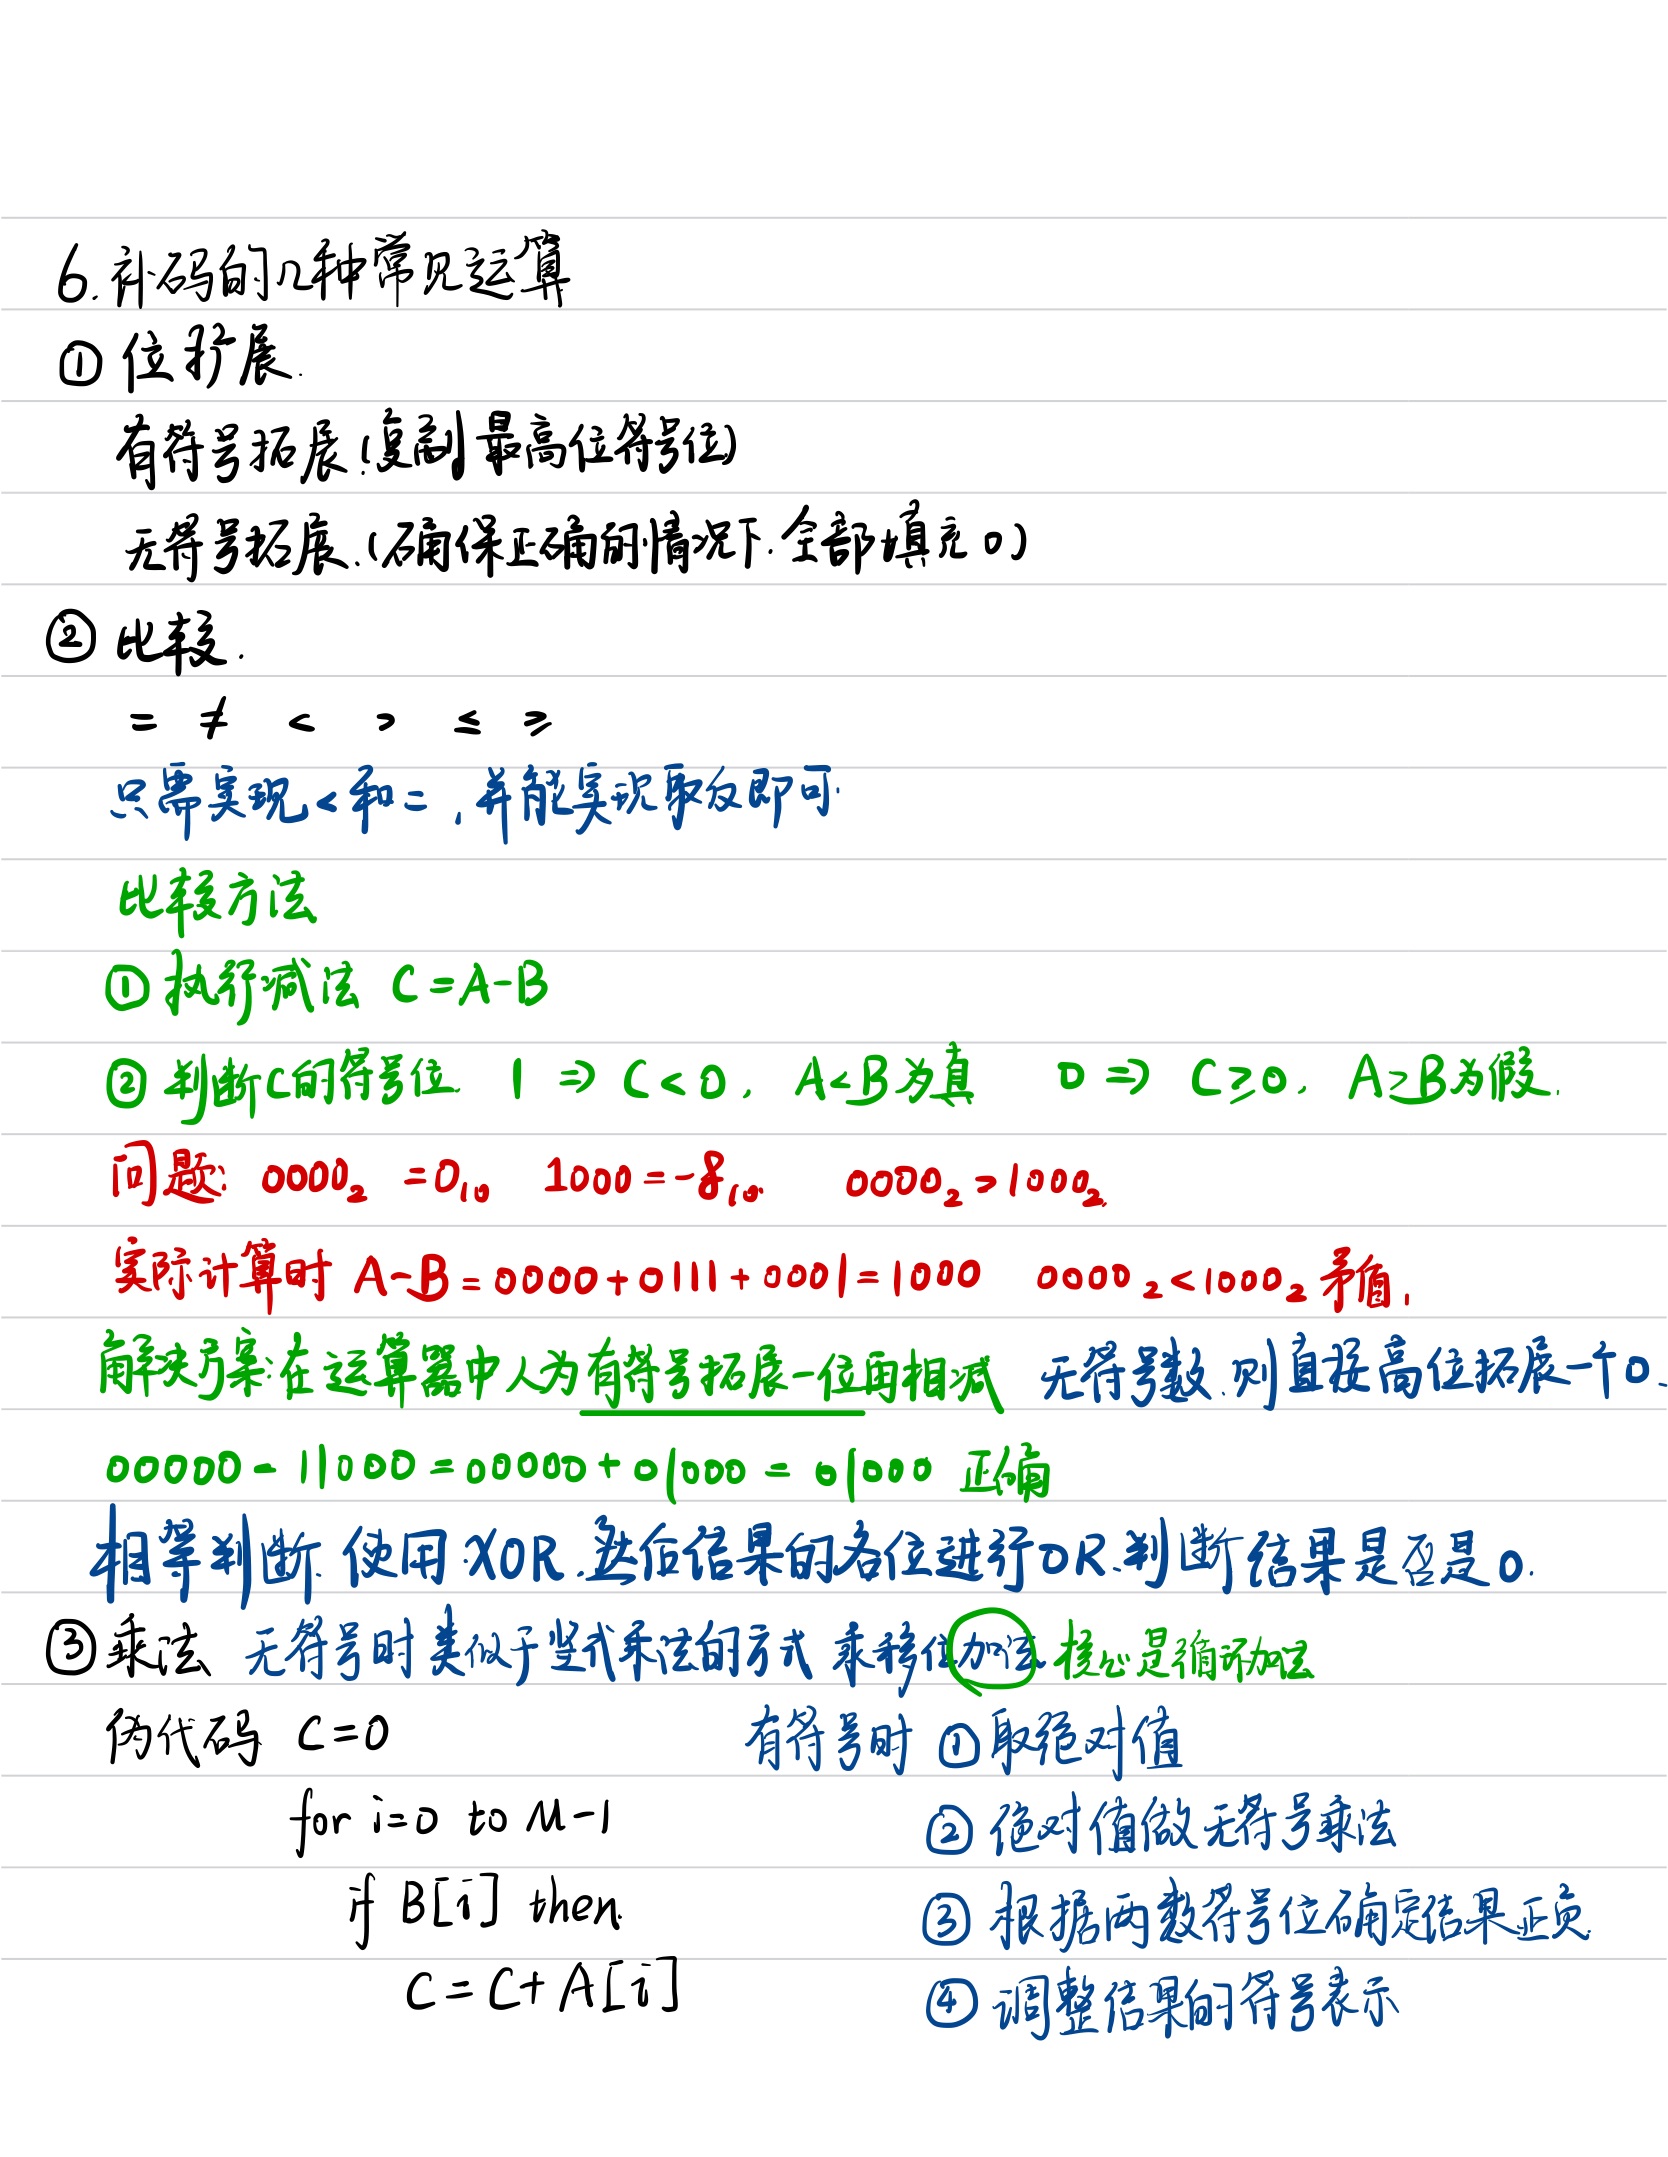 6.补码的几种常见运算
① 位扩展.
有符号拓展.(复制最高位符号位)
无符号拓展.(确保正确的情况下.全部填充0)
② 比较.
= ≠ < > ≤ ≥
只需实现<和=,并能实现取反即可.
比较方法
① 执行减法 C=A-B
② 判断C的符号位. 1 ⇒ C<0, A<B为真 0 ⇒ C≥0, A≥B为假.
问题: 0000₂ =0₁₀ 1000=-8₁₀. 0000₂>1000₂.
实际计算时 A-B=0000+0111+0001=1000 0000₂<1000₂ 矛盾.
解决方案:在运算器中人为有符号拓展一位再相减 无符号数.则直接高位拓展一个0.
00000-11000=00000+01000=01000 正确
相等判断.使用XOR.然后结果的各位进行OR.判断结果是否是0.
③ 乘法 无符号时类似于竖式乘法的方式 乘移位加法. 核心是循环加法
伪代码 C=0 有符号时 ① 取绝对值
for i=0 to M-1 ② 绝对值做无符号乘法
if B[i] then. ③ 根据两数符号位确定结果正负.
C=C+A[i] ④ 调整结果的符号表示